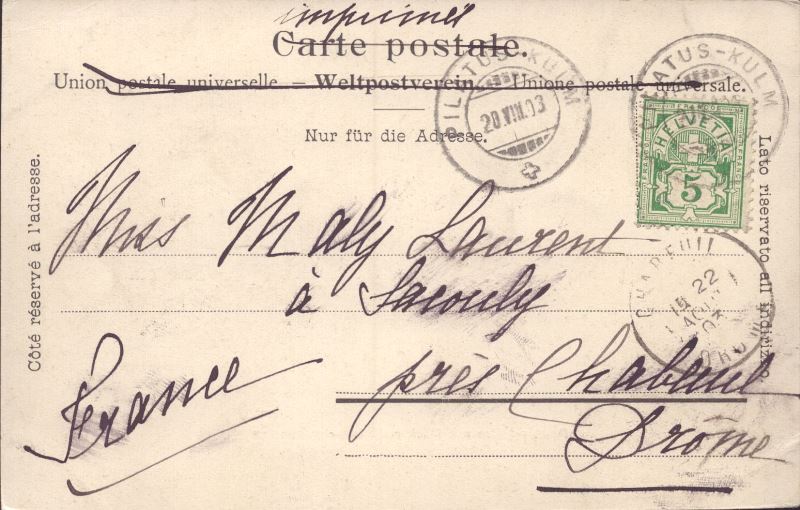 imprimés
Carte postale.
Union postale universelle. – Weltpostverein. – Unione postale universale.
Nur für die Adresse.
Côté réservé à l'adresse.
Lato riservato all'indirizzo.
PILATUS-KULM
20.VIII.03
PILATUS-KULM
FRANCO
HELVETIA
5
22
AOUT
03
Miss Maly Laurent
à
près Chabeuil
Drôme
France